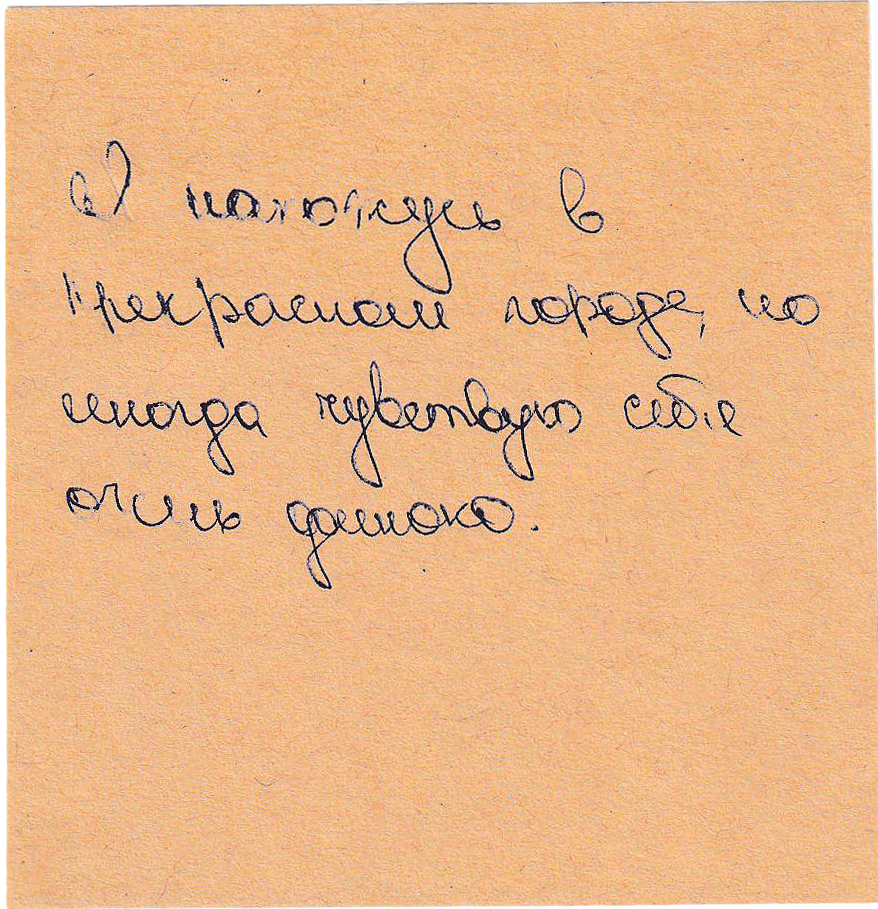 Я нахожусь в
прекрасном городе, но
иногда чувствую себя
очень одиноко.